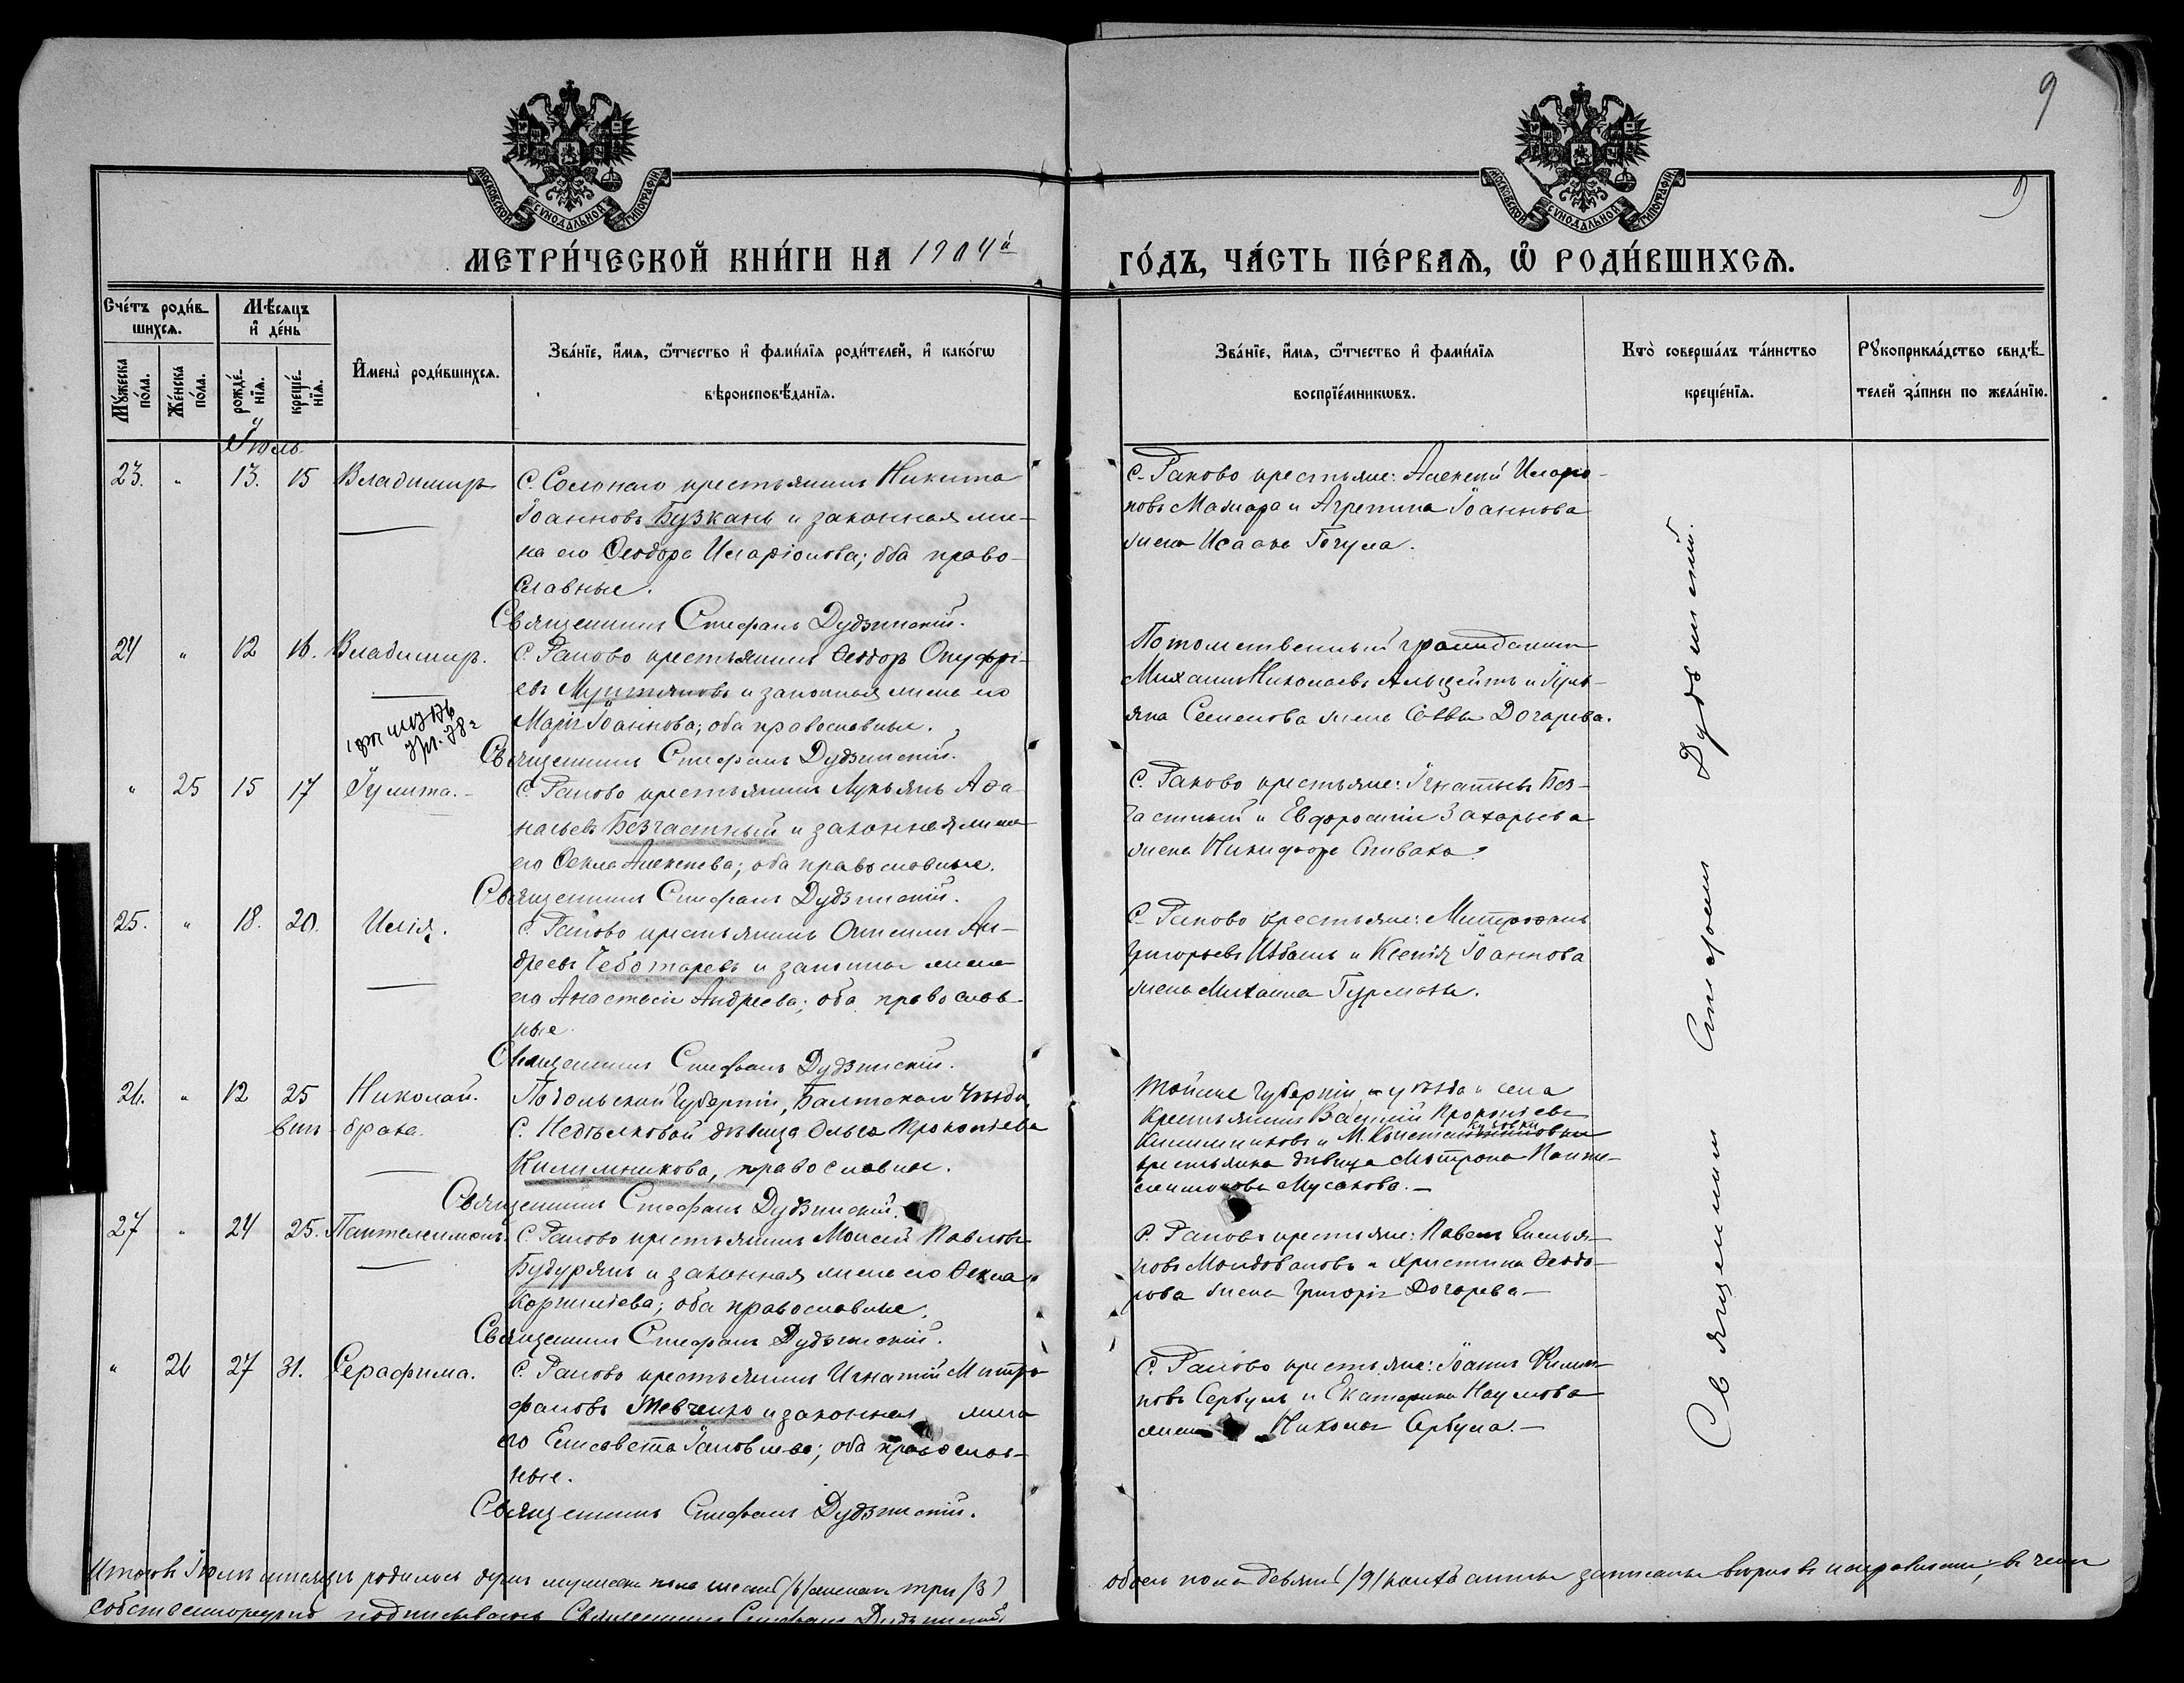 9
9
МОСКОВСКОЙ СѴНОДАЛЬНОЙ ТИПОГРАФІИ
МОСКОВСКОЙ СѴНОДАЛЬНОЙ ТИПОГРАФІИ
МЕТРИ́ЧЕСКОЙ КНИ́ГИ НА 1904й
ГО́ДЪ, ЧА́СТЬ ПЕ́РВАѦ, Ѽ РОДИ́ВШИХСѦ.
Сче́тъ роди́в-
шихсѧ.
Мѣ́сѧцъ
и҆ де́нь
Мꙋ́жеска по́ла.
Же́нска по́ла.
рожде́нїѧ.
креще́нїѧ.
И҆мена̀ роди́вшихсѧ.
Зва́нїе, и҆́мѧ, ѻ҆́тчество и҆ фами́лїѧ роди́телей, и҆ како́гѡ
вѣроисповѣ́данїѧ.
Зва́нїе, и҆́мѧ, ѻ҆́тчество и҆ фами́лїѧ
воспрїе́мникѡвъ.
Кто̀ соверша́лъ та́инство
креще́нїѧ.
Рꙋкоприкла́дство свидѣ́-
телей за́писи по жела́нїю.
Іюль
23. " 13. 15 Владимиръ
С. Солонаго крестьянинъ Никита
Іоанновъ Бузканъ и законная же-
на его Ѳеодора Иларіонова; оба право-
славные.
Священникъ Стефанъ Дудзинскій.
С. Раково крестьяне: Алексѣй Иларіо-
новъ Мамара и Агрепина Іоаннова
жена Исаака Гогула.
24 " 12 16. Владимиръ.
С. Раково крестьянинъ Ѳеодоръ Онуфрі-
евъ и законная жена его
Марія Іоаннова; оба православные.
Священникъ Стефанъ Дудзинскій.
Потомственный гражданинъ
Михаилъ Николаевъ и Іулі-
яна Семенова жена Саввы Догарева.
" 25 15 17 Іулита.
С. Раково крестьянинъ Лукьянъ Аѳа-
насьевъ Безчастный и законная жена
его Ѳекла Алексѣева; оба православные.
Священникъ Стефанъ Дудзинскій.
С. Раково крестьяне: Игнатьевъ Без-
частный и Евфросинія Захарьева
жена Никифора Спивака.
25. " 18. 20. Илія.
С. Раково крестьянинъ Ан-
дреевъ Чеботаревъ и законная жена
его Анастасія Андреева; оба православ-
ные.
Священникъ Стефанъ Дудзинскій.
С. Раково крестьяне: Митрофанъ
Григорьевъ и Ксенія Іоаннова
жена Михаила Гурмана.
26. " 12 25 Николай.
внѣ брака.
Подольской Губерніи, Балтскаго Уѣзда,
С. Недѣлковой дѣвица Ольга Прокопіева
Килимникова, православная.
Священникъ Стефанъ Дудзинскій.
Тойже Губерніи и уѣзда и села
Крестьянинъ Василій Прокопіевъ
Килимниковъ и М.
крестьянка дѣвица Матрона Панте-
леимонова Мусакова.
27 " 24 25. Пантелеимонъ.
С. Раково крестьянинъ Моисей Павловъ
Будурянъ и законная жена его Ѳекла
Корнилієва; оба православные.
Священникъ Стефанъ Дудзинскій.
С. Раково крестьяне: Павелъ Емелья-
новъ Молдовановъ и Христина Ѳеодо-
рова жена Григорія Догарева.
" 26 27 31. Серафима.
С. Раково крестьянинъ Игнатій Митро-
фановъ Шевченко и законная жена
его Елисавета Іаковлева; оба православ-
ные.
Священникъ Стефанъ Дудзинскій.
С. Раково крестьяне: Іоаннъ Филип-
повъ Сербулъ и Екатерина Наумова
жена Николая Сербула.
Священникъ Стефанъ Дудзинскій.
Итого въ Іюлѣ мѣсяцѣ родилось душъ мужеска пола шесть (6) женска три (3)
обоего пола девять (9) записаны вѣрно и исправно; въ чемъ
собственноручно подписываюсь Священникъ Стефанъ Дудзинскій